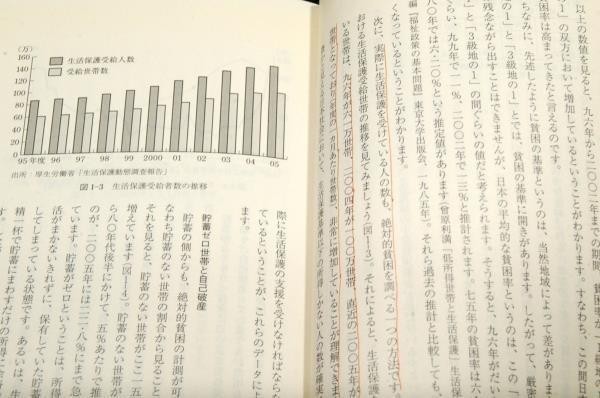 以上の数値を見ると、九六年から二〇〇二年
貧困率は高まってきたと言えるのです。
の１」の双方において増加しているということがわかります。すなわち、この間日本
ちなみに、先述したように貧困の基準というのは、当然地域によって差がありま
の１」と「３級地の１」とでは、貧困の基準に開きがあります。したがって、厳密
残念ながら出すことはできませんが、日本の平均的な貧困率というのは、この「
」と「３級地の１」の間ぐらいの値だと考えられます。そうすると、九六年がだい
ぐらい、九九年で一一％、二〇〇二年で一三％と推計されます。七五年の貧困率は六・
八〇年では六・二〇％という推定値があります（曽原利満「低所得世帯と生活保護」
編『福祉政策の基本問題』東京大学出版会、一九八五年）。それら過去の推計と比較しても、
くなっているということがわかります。
次に、実際に生活保護を受けている人の数も、絶対的貧困を調べる一つの方法です。
おける生活保護受給世帯の推移を見てみましょう（図1-3）。それによると、生活保護
いる世帯は、九六年が六一万世帯、二〇〇四年が一〇〇万世帯、直近の二〇〇五年が
世帯となっており（年度の一か月あたり世帯数）、非常に増加していることが理解できま
生活保護基準以下の所得しかない人の数が確実
（万）
160
140
120
100
80
60
40
20
0
生活保護受給人数
受給世帯数
95年度 96 97 98 99 2000 01 02 03 04 05
出所：厚生労働省「生活保護動態調査報告」
図1-3 生活保護受給者数の推移
際に生活保護の支援を受けなければなら
ているということが、これらのデータによ
貯蓄ゼロ世帯と自己破産
貯蓄の側からも、絶対的貧困の計測が可
なわち貯蓄のない世帯の割合から見ること
それを見ると、貯蓄のない世帯がここ一五
増えています（図1-4）。貯蓄のない世帯が
ら八〇年代後半にかけて、五％あたりで推
のが、二〇〇五年には二二・八％にまで急
ています。貯蓄がゼロということは、所得
活がまかないきれずに、保有していた貯蓄
してしまっている状態です。あるいは、生
精一杯で貯蓄にまわすだけの所得に余